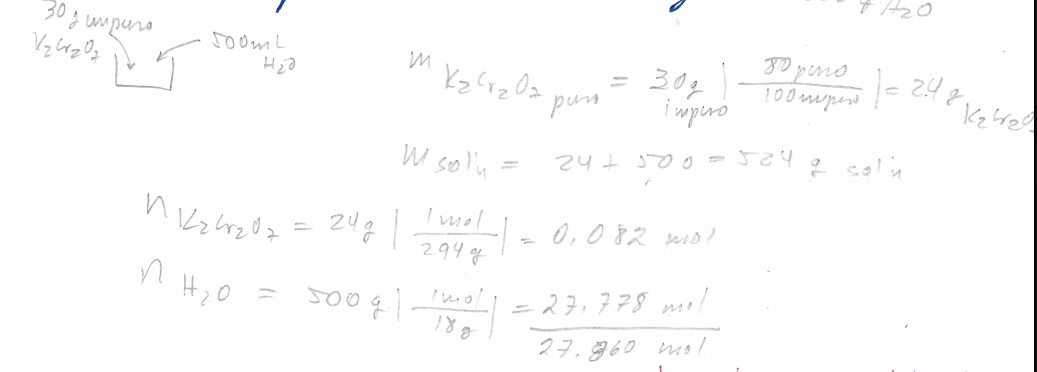 g H2O
30g impuro
K2Cr2O7
500mL
H2O
m K2Cr2O7 puro = 30g impuro | 80 puro / 100 impuro | = 24 g K2Cr2O
m sol'n = 24 + 500 = 524 g sol'n
n K2Cr2O7 = 24g | 1mol / 294g | = 0.082 mol
n H2O = 500g | 1mol / 18g | = 27.778 mol
27.860 mol